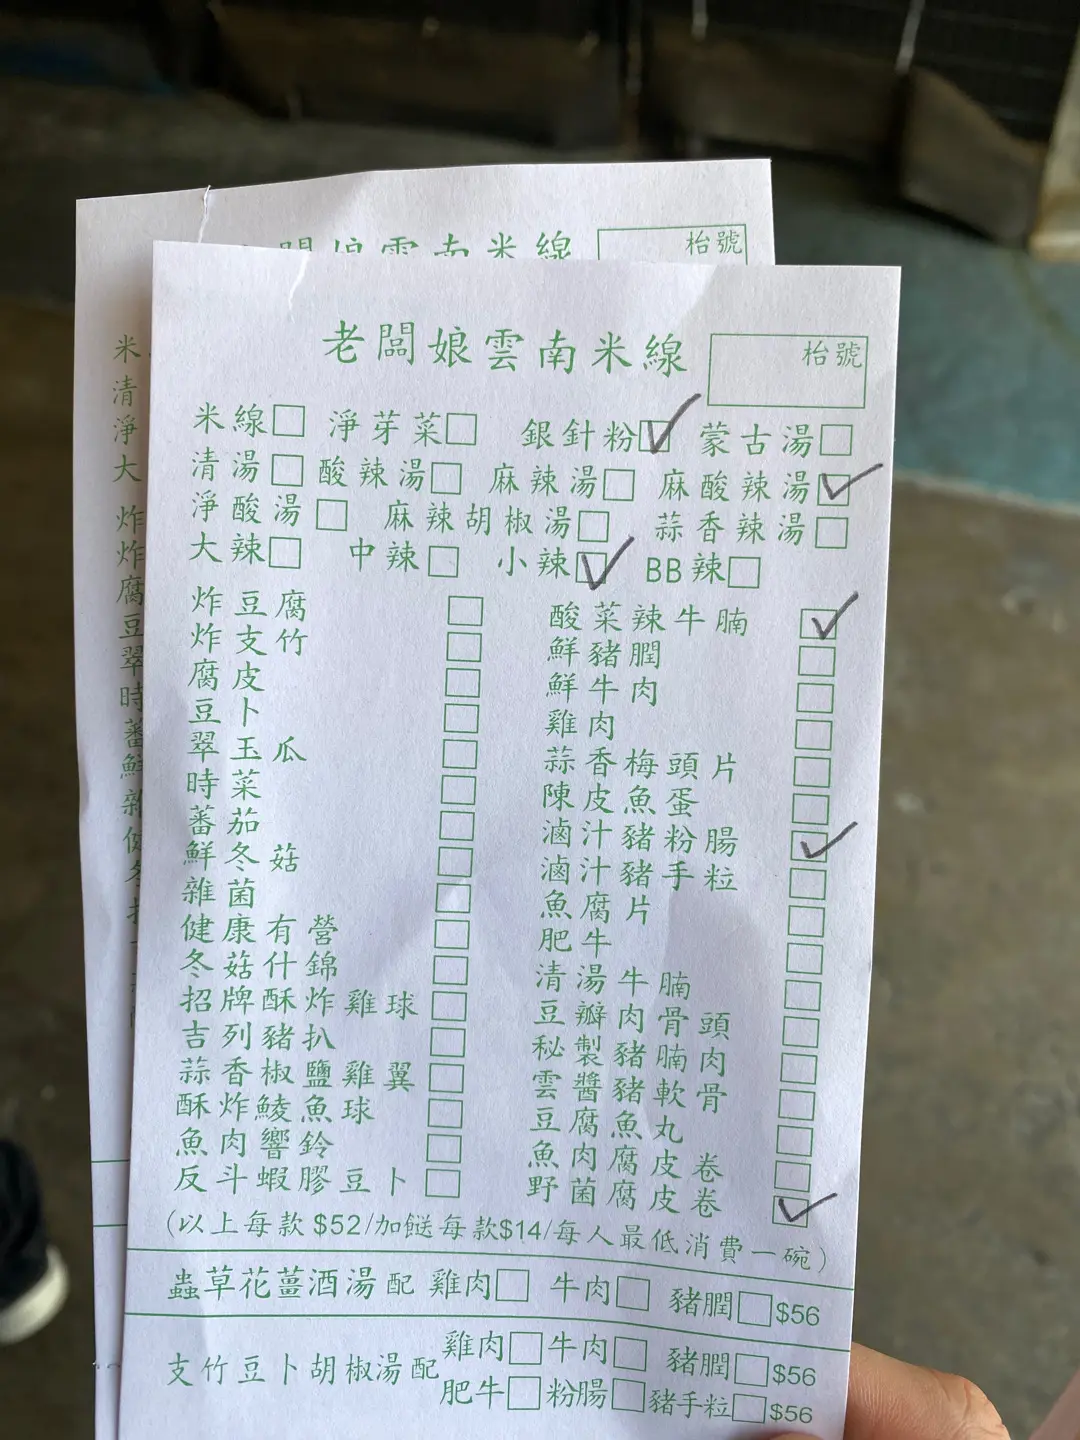 闆娘雲南米線
枱號
老闆娘雲南米線
枱號
米線 淨芽菜 銀針粉 蒙古湯
清湯 酸辣湯 麻辣湯 麻酸辣湯
淨酸湯 麻辣胡椒湯 蒜香辣湯
大辣 中辣 小辣 BB辣
炸豆腐 酸菜辣牛腩
炸支竹 鮮豬膶
腐皮 鮮牛肉
豆卜 雞肉
翠玉瓜 蒜香梅頭片
時菜 陳皮魚蛋
蕃茄 滷汁豬粉腸
鮮冬菇 滷汁豬手粒
雜菌 魚腐片
健康有營 肥牛
冬菇什錦 清湯牛腩
招牌酥炸雞球 豆瓣肉骨頭
吉列豬扒 秘製豬腩肉
蒜香椒鹽雞翼 雲醬豬軟骨
酥炸鯪魚球 豆腐魚丸
魚肉響鈴 魚肉腐皮卷
反斗蝦膠豆卜 野菌腐皮卷
(以上每款$52/加餸每款$14/每人最低消費一碗)
蟲草花薑酒湯配 雞肉 牛肉 豬膶 $56
支竹豆卜胡椒湯配 雞肉 牛肉 豬膶 $56
肥牛 粉腸 豬手粒 $56
米
清
淨
大
炸
炸
腐
豆
翠
時
蕃
鮮
雜
健
冬